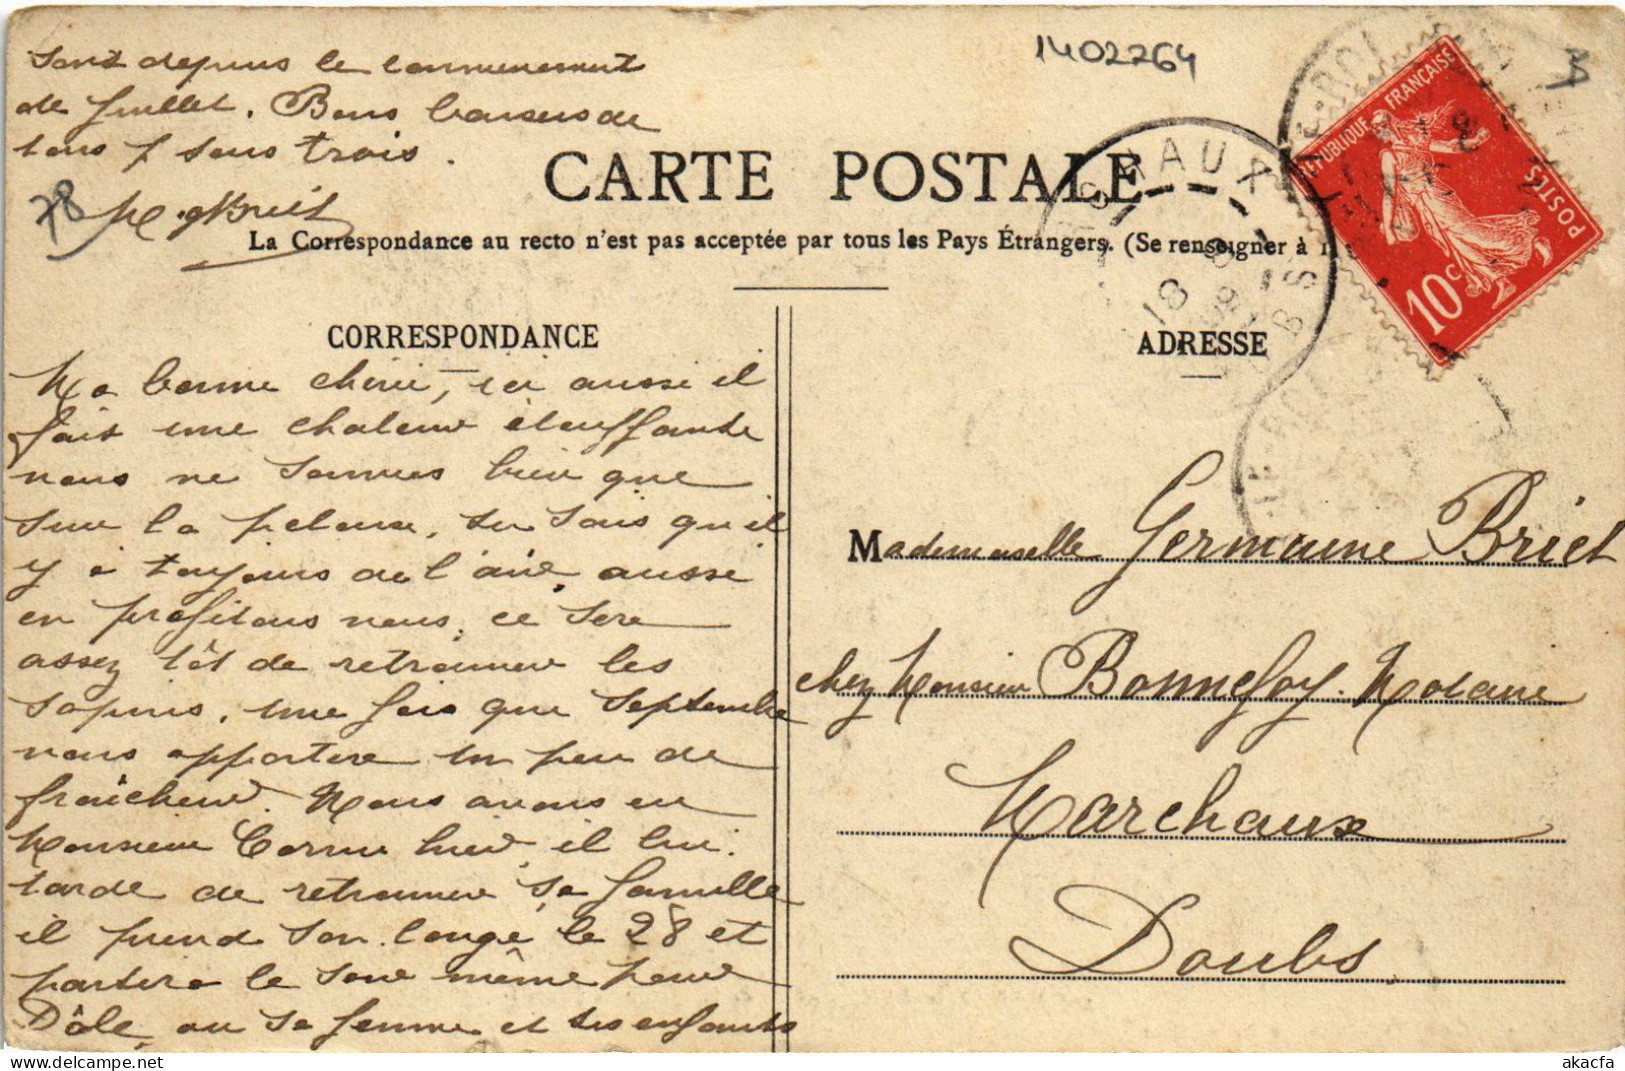 1402764
sont depuis le commencement
de Juillet. Bons baisers de
tous pr vous trois.
M. Briet
78
CARTE POSTALE
La Correspondance au recto n'est pas acceptée par tous les Pays Étrangers. (Se renseigner à
RÉPUBLIQUE FRANÇAISE
POSTES
10c
18 8
CORRESPONDANCE
Ma bonne chérie, ici aussi il
fait une chaleur étouffante
nous ne sommes bien que
sur la pelouse, tu sais qu'il
y a toujours de l'air, aussi
en profitons nous, ce sera
assez tôt de retrouver les
sapins, une fois que Septembre
nous apportera un peu de
fraîcheur. Nous avons eu
Monsieur Cornu hier, il lui
tarde de retrouver sa famille
il prend son congé le 28 et
partira le soir même pour
Dôle, où sa femme et ses enfants
ADRESSE
Mademoiselle Germaine Briet
chez Monsieur Bonnefoy. Notaire
Marchaux
Doubs
akacfa